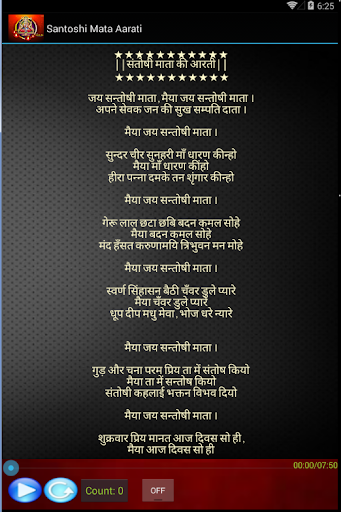 6:25
Santoshi Mata Aarati
★★★★★★★★★★★
||संतोषी माता की आरती||
★★★★★★★★★★★
जय सन्तोषी माता, मैया जय सन्तोषी माता ।
अपने सेवक जन की सुख सम्पति दाता ।
मैया जय सन्तोषी माता ।
सुन्दर चीर सुनहरी माँ धारण कीन्हो
मैया माँ धारण कींहो
हीरा पन्ना दमके तन शृंगार कीन्हो
मैया जय सन्तोषी माता ।
गेरू लाल छटा छबि बदन कमल सोहे
मैया बदन कमल सोहे
मंद हँसत करुणामयि त्रिभुवन मन मोहे
मैया जय सन्तोषी माता ।
स्वर्ण सिंहासन बैठी चँवर डुले प्यारे
मैया चँवर डुले प्यारे
धूप दीप मधु मेवा, भोज धरे न्यारे
मैया जय सन्तोषी माता ।
गुड़ और चना परम प्रिय ता में संतोष कियो
मैया ता में सन्तोष कियो
संतोषी कहलाई भक्तन विभव दियो
मैया जय सन्तोषी माता ।
शुक्रवार प्रिय मानत आज दिवस सो ही,
मैया आज दिवस सो ही
00:00/07:50
Count: 0
OFF